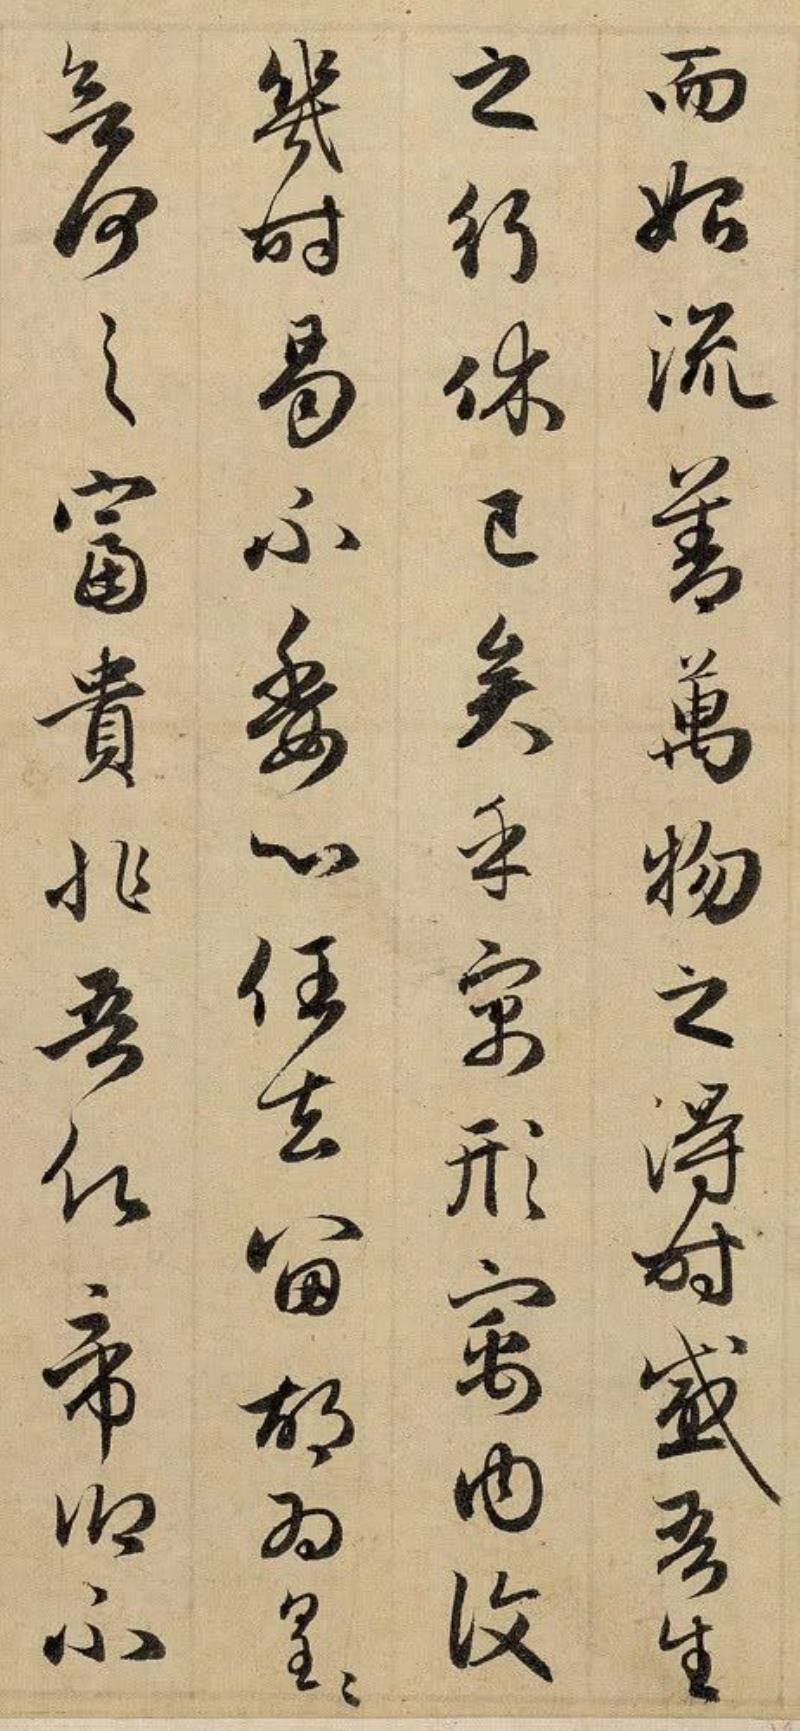 而始流善萬物之得時感吾生
之行休已矣乎寓形寓内復
幾時曷不委心任去留胡為皇〻
欲何之富貴非吾願帝鄉不